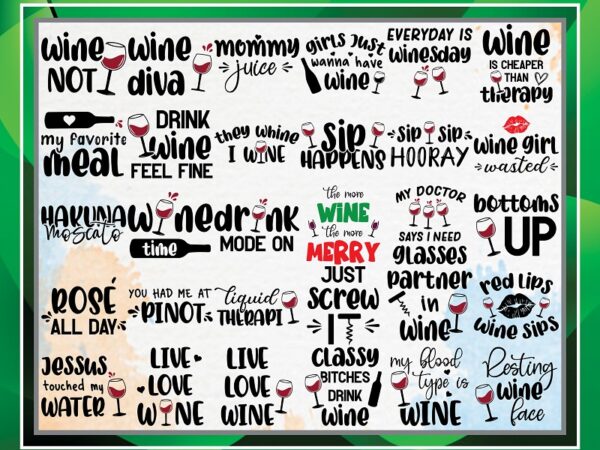 wine
NOT
wine
diva
mommy
juice
girls just
wanna have
wine
EVERYDAY IS
winesday
wine
IS CHEAPER
THAN
therapy
my favorite
meal
DRINK
wine
FEEL FINE
they whine
I WINE
sip
HAPPENS
SIP SIP
HOORAY
wine girl
wasted
HAKUNA
Moscato
wine
time
drink
MODE ON
the more
WINE
the more
MERRY
MY DOCTOR
SAYS I NEED
glasses
bottoms
UP
ROSÉ
ALL DAY
YOU HAD ME AT
PINOT
liquid
THERAPI
JUST
screw
IT
partner
in
wine
red lips
wine sips
Jessus
touched my
WATER
LIVE
LOVE
WINE
LIVE
LOVE
WINE
classy
BITCHES
DRINK
wine
my blood
type is
WINE
Resting
wine
face